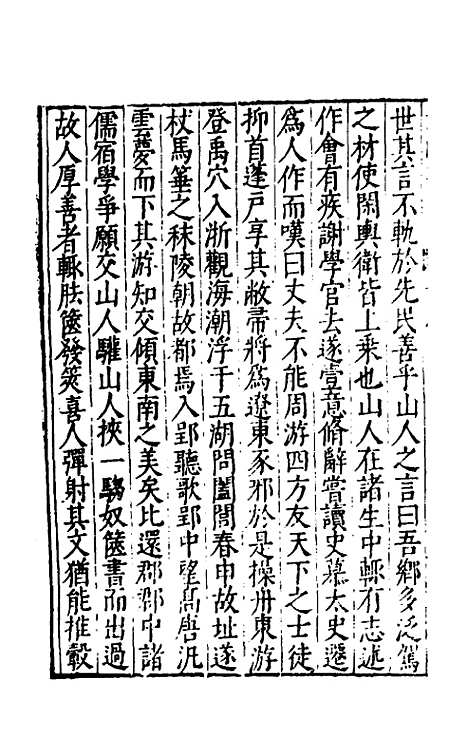 世其言不軌於先民善乎山人之言曰吾鄉多泛駕
之材使閑輿衛皆上乘也山人在諸生中輒有志述
作會有疾謝學官去遂壹意脩辭嘗讀史慕太史遷
爲人作而嘆曰丈夫不能周游四方友天下之士徒
抑首蓬戶享其敝帚將爲遼東豕邪於是操舟東游
登禹穴入浙觀海潮浮于五湖問闔閭春申故址遂
杖馬箠之秣陵朝故都焉入郢聽歌郢中望高唐汎
雲夢而下其游知交傾東南之美矣比還郡郡中諸
儒宿學爭願交山人驩山人挾一騶奴篋書而出過
故人厚善者輒胠篋發筴喜人彈射其文猶能推轂